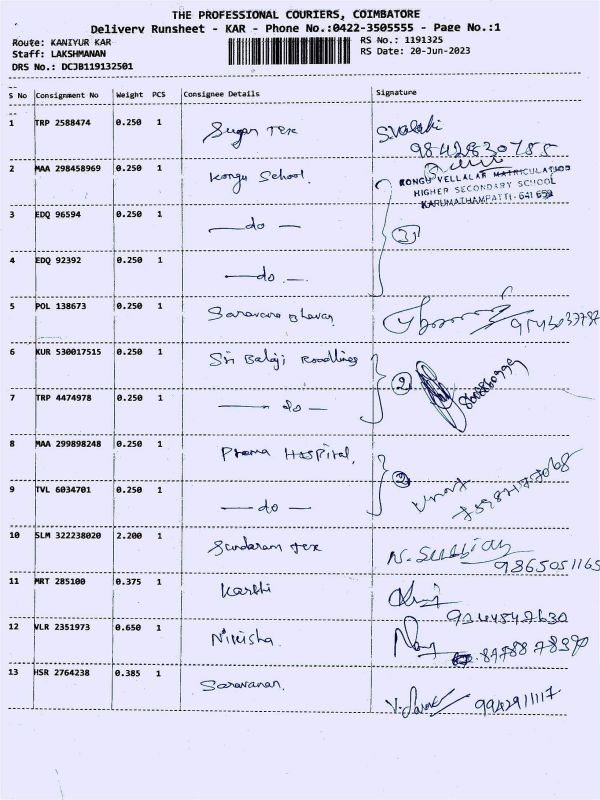 THE PROFESSIONAL COURIERS, COIMBATORE
Delivery Runsheet - KAR - Phone No.:0422-3505555 - Page No.:1
Route: KANIYUR KAR
RS No.: 1191325
Staff: LAKSHMANAN
RS Date: 20-Jun-2023
DRS No.: DCJB119132501
S No Consignment No Weight PCS Consignee Details Signature
1 TRP 2588474 0.250 1 Sugan Tex
9842830755
2 MAA 298458969 0.250 1 Kongu School.
KONGU VELLALAR MATRICULATION
HIGHER SECONDARY SCHOOL
KARUMATHAMPATTI - 641 659
3 EDQ 96594 0.250 1 — do — 3
4 EDQ 92392 0.250 1 — do —
5 POL 138673 0.250 1 Saravana Bhavan
6 KUR 530017515 0.250 1 Sri Balaji Roadlines 2
7 TRP 4474978 0.250 1 — do —
8 MAA 299898248 0.250 1 Prema Hospital, 2
9 TVL 6034701 0.250 1 — do —
10 SLM 322238020 2.200 1 Sundaram Tex
9865051165
11 MRT 285100 0.375 1 Karthi
9244542630
12 VLR 2351973 0.650 1 Nikisha.
13 HSR 2764238 0.385 1 Saravanan. 9942911117